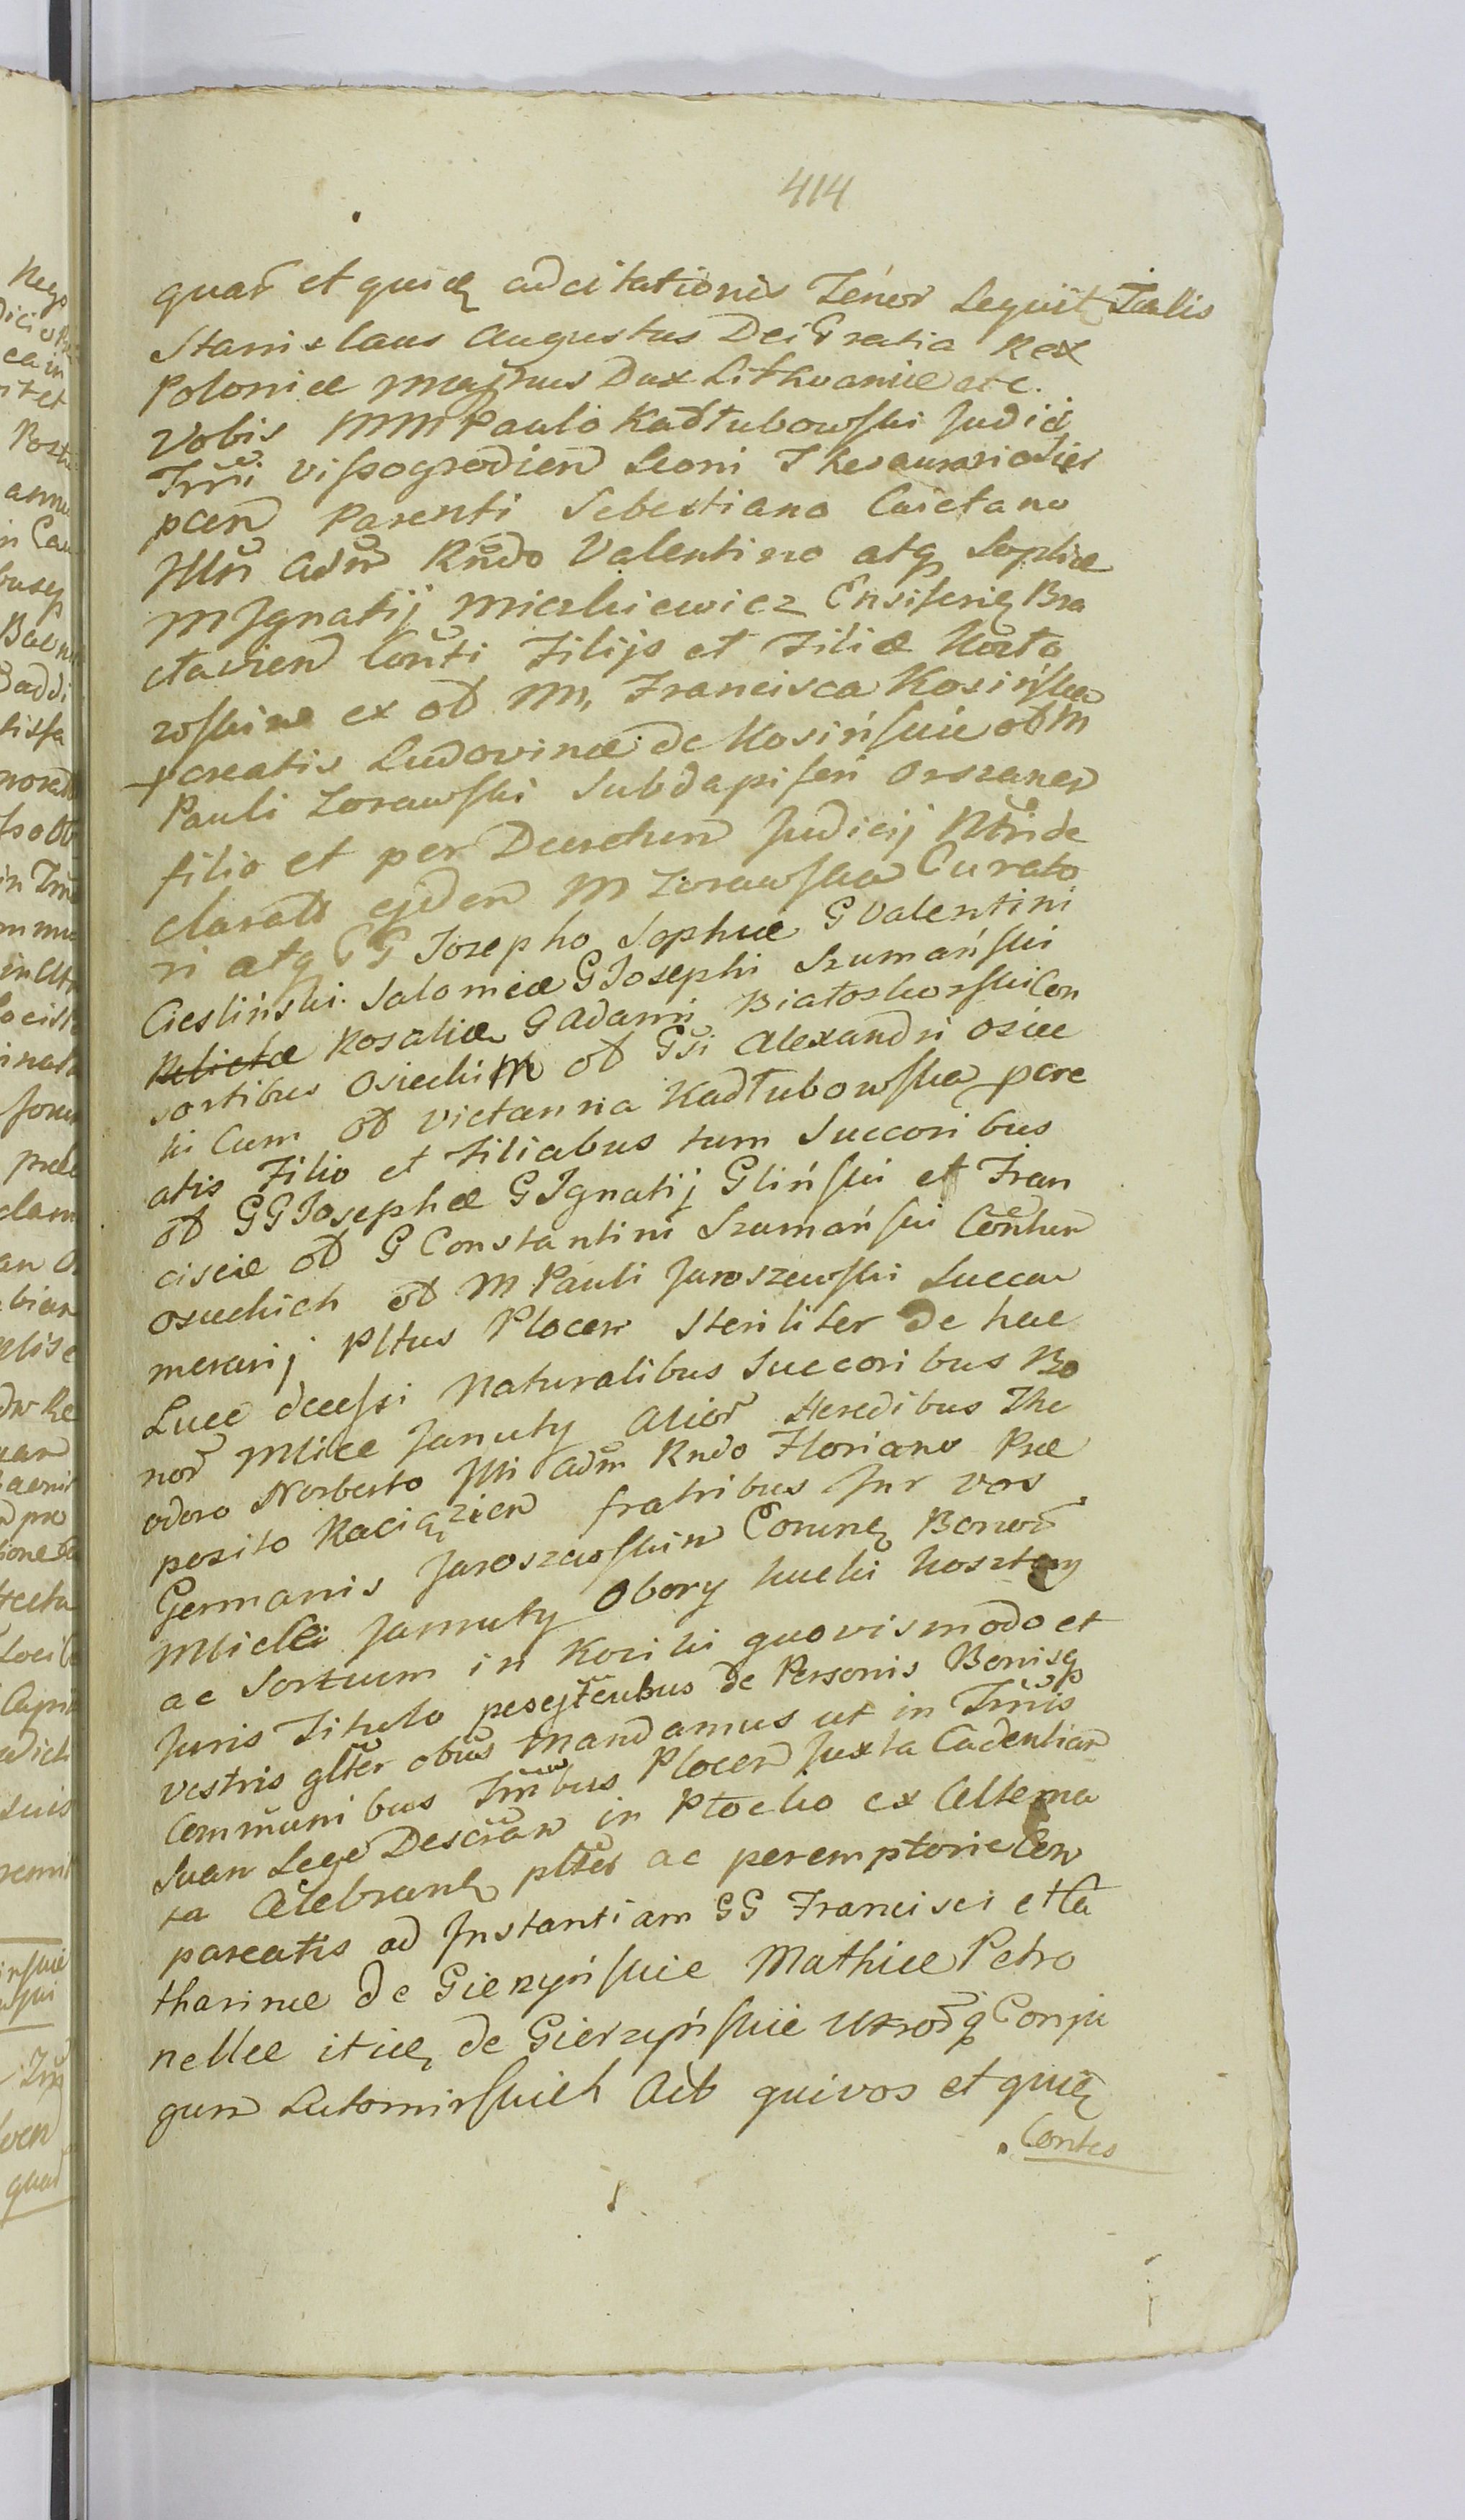 414
quar̃ et quidẽ adcitationis Tenor sequit Talis
Stanislaus Augustus Dei Gratia Rex
Poloniæ Magnus Dux Lithuaniæ etc.
Vobis MM Paulo Kadłubowski Judici
Trr̃i Vissogrodien Leoni Thesaurario Sier
pcen Parenti Sebestiano Caietano
Jllri Adm̃ Rndo Valentino atq Sophiæ
M Jgnatij Mierkiewicz Ensiferi Bra
clavien Conti Filijs et Filiæ Kosta
ex od M, Francisca Kosińska
pcreatis Ludovinæ de Kosińskie od M
Pauli Zorawski Subdapiferi Orszanen
filio et per Decretum Judicij Ntri de
clarato ejdem M Zorawska Curato
ri atq GG Jozepho Sophiæ G Valentini
Ciesliński Salomeæ G Josephi Szumański
Relictæ Rosaliæ G Adami Białoskorski Con
sortibus Osieckim od Gsi Alexandri Osiec
ki Cum od Victanna Kadłubowska pcre
atis Filio et Filiabus tum Succoribus
od GG Josephæ G Jgnatij Gliński et Fran
cisciæ od G Constantini Szumański Conthor
Osieckich od M Pauli Jaroszewski Succa
merarij Pltus Plocen Steriliter de hac
Luce decessi Naturalibus Succoribus Bo
nor̃ Mlice Januty Alior̃ Heredibus The
odoro Norberto Jlli Adm̃ Rndo Floriano Præ
posito Raciązien fratribus Jnr vos
Germanis Jaroszewskim Comunẽ Bonor̃
Mlicki Januty Obory Kucki Kosztary
ac Sortium in Kozihi quovismodo et
Juris Titulo de Personis Bonisq
vestris glter obus Mandamus ut in Trr̃is
Communibus Trr̃ibus Plocen Juxta Cadentiam
Suam Lege Descram in Płocko ex Alterna
ta Celebrand plter ac peremptorie Com
pareatis ad Jnstantiam GG Francisci et Ca
tharinæ de Gierzyńskie Mathiæ Petro
nellæ itidẽ de Gierzyńskie Uxorq Conju
gum Lutomirskich Act qui vos et quidẽ
Contes